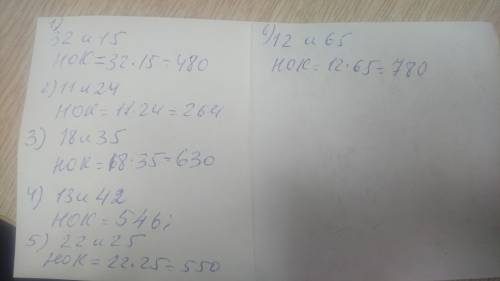 1)
32 и 15
НОК = 32·15 = 480
2) 11 и 24
НОК = 11·24 = 264
3) 18 и 35
НОК = 18·35 = 630
4) 13 и 42
НОК = 546;
5) 22 и 25
НОК = 22·25 = 550
6) 12 и 65
НОК = 12·65 = 780